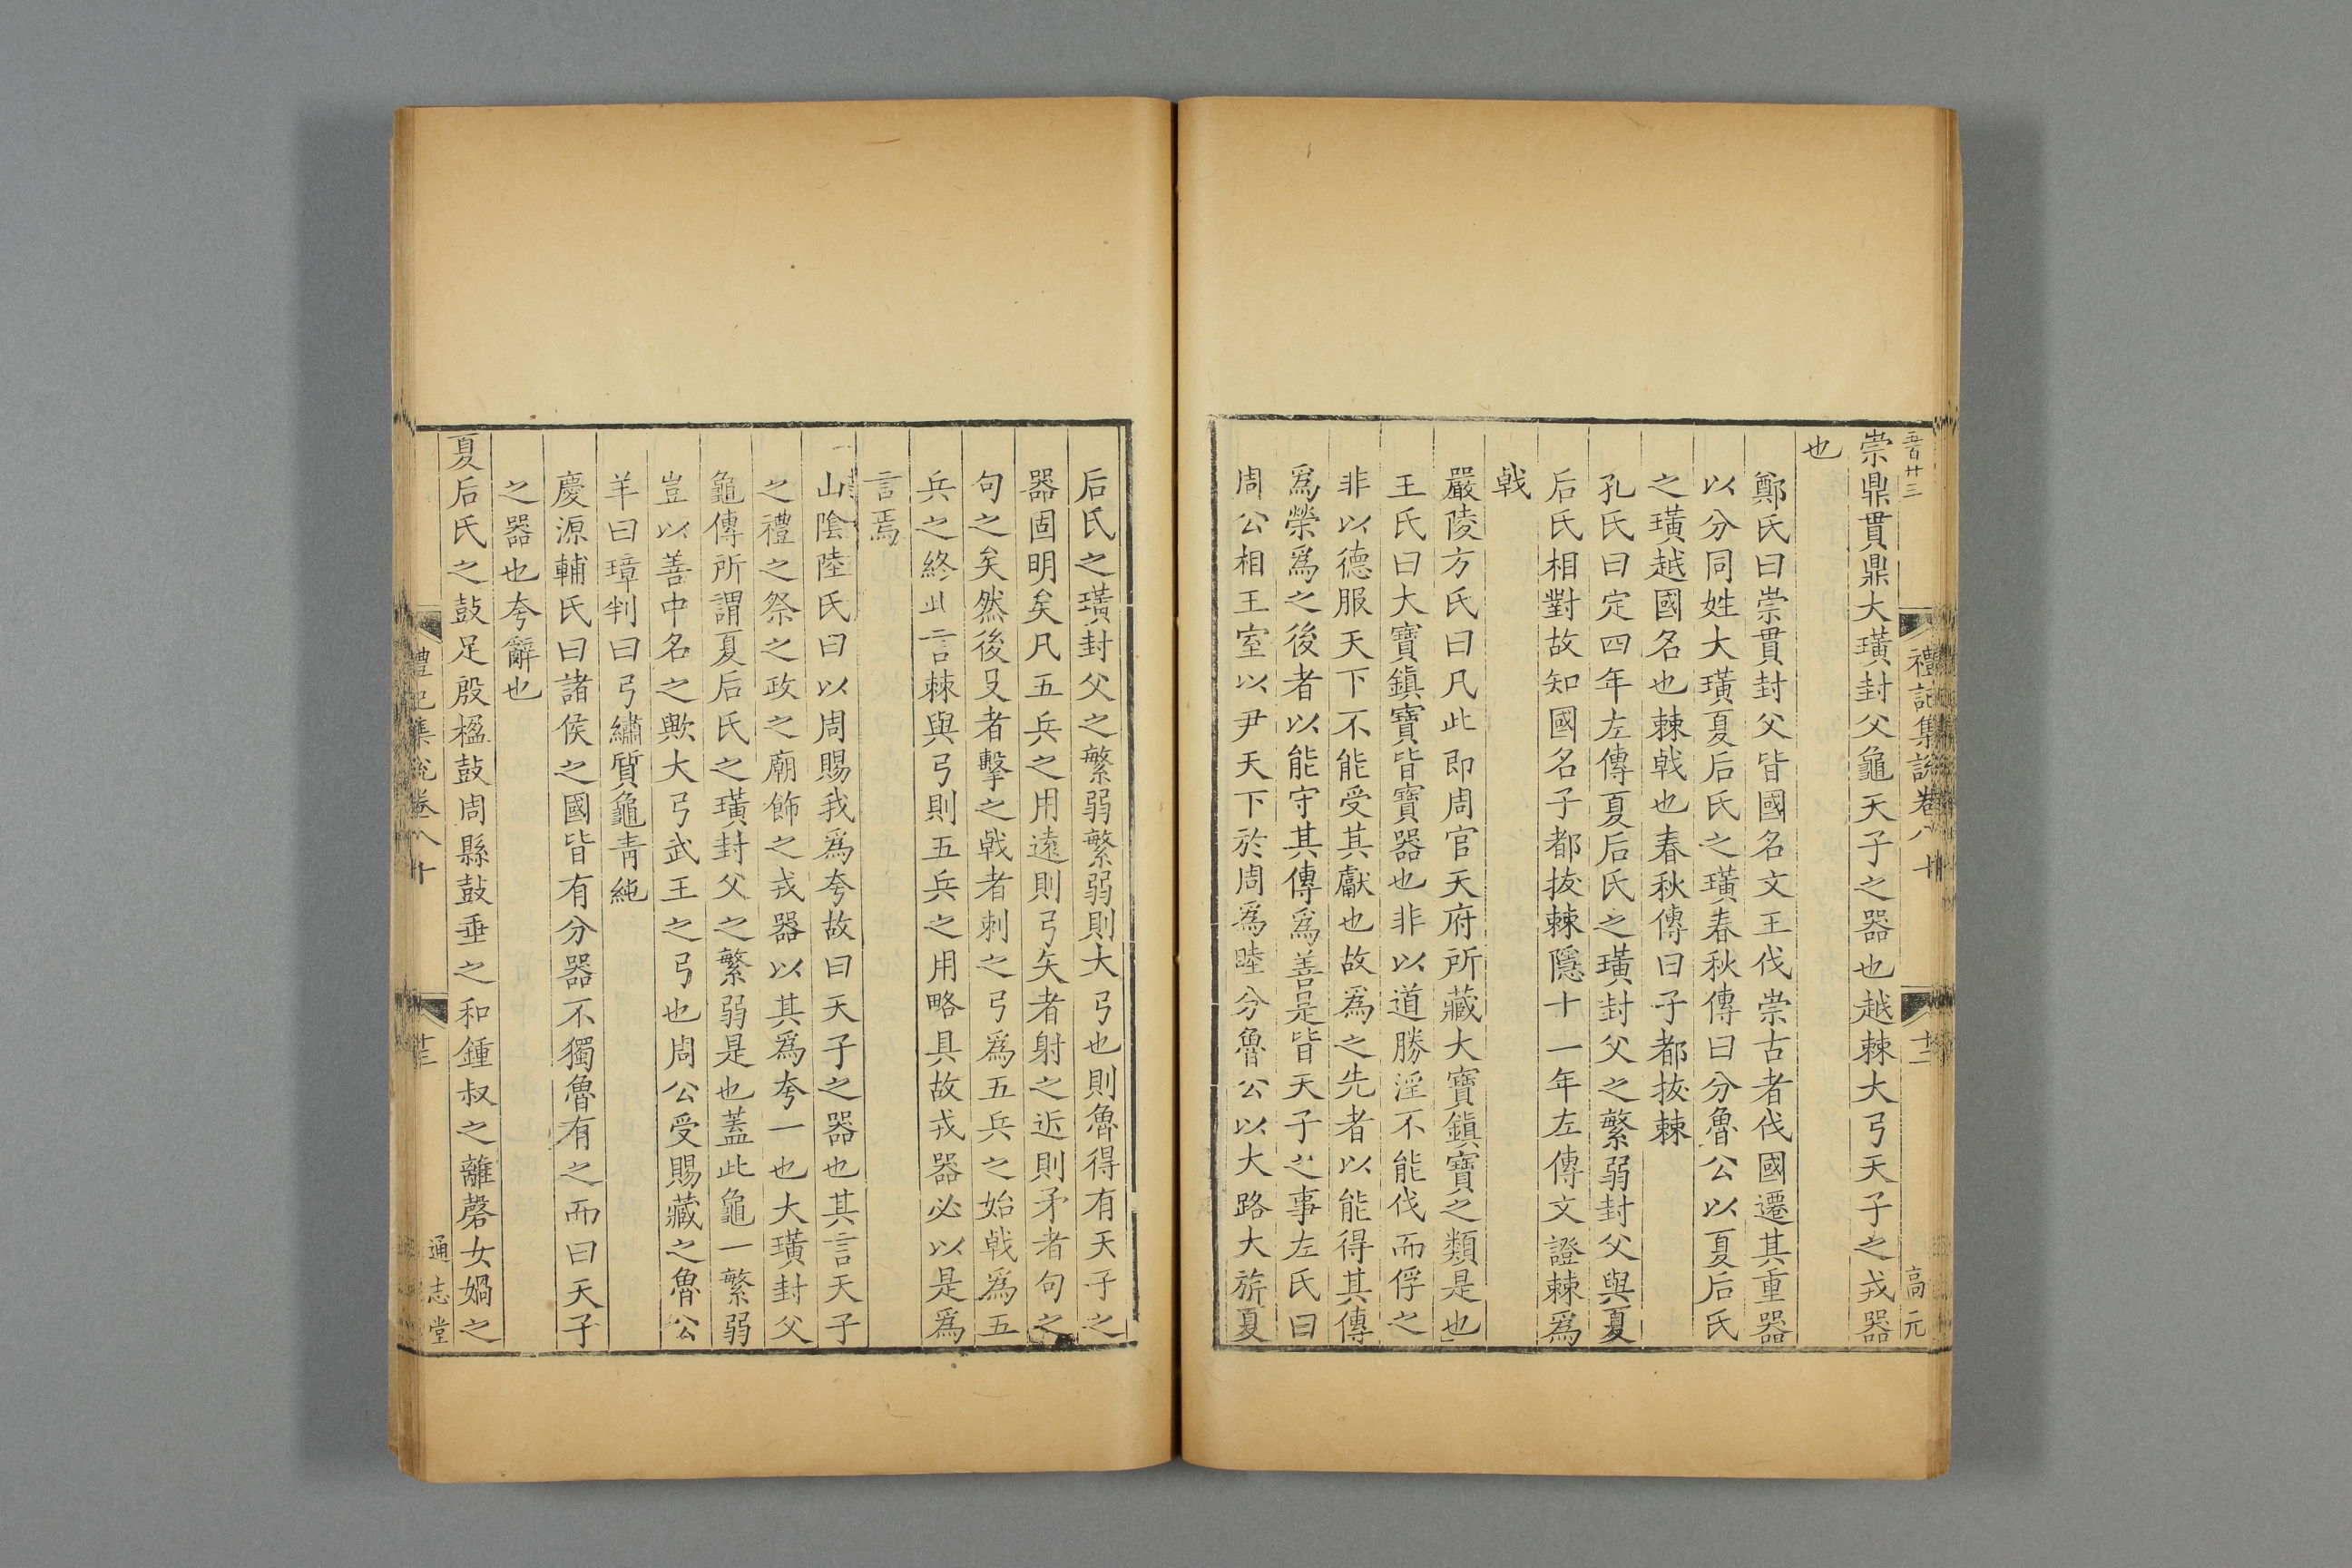 五百廿三
禮記集說卷八十
高元
崇鼎貫鼎大璜封父龜天子之器也越棘大弓天子之戎器
也
鄭氏曰崇貫封父皆國名文王伐崇古者伐國遷其重器
以分同姓大璜夏后氏之璜春秋傳曰分魯公以夏后氏
之璜越國名也棘戟也春秋傳曰子都拔棘
孔氏曰定四年左傳夏后氏之璜封父之繁弱封父與夏
后氏相對故知國名子都拔棘隱十一年左傳文證棘爲
戟
嚴陵方氏曰凡此即周官天府所藏大寶鎮寶之類是也
王氏曰大寶鎮寶皆寶器也非以道勝淫不能伐而俘之
非以德服天下不能受其獻也故爲之先者以能得其傳
爲榮爲之後者以能守其傳爲善是皆天子之事左氏曰
周公相王室以尹天下於周爲睦分魯公以大路大旂夏
后氏之璜封父之繁弱繁弱則大弓也則魯得有天子之
器固明矣凡五兵之用遠則弓矢者射之近則矛者句之
句之矣然後殳者擊之戟者刺之弓爲五兵之始戟爲五
兵之終此言棘與弓則五兵之用略具故戎器必以是爲
言焉
山陰陸氏曰以周賜我爲夸故曰天子之器也其言天子
之禮之祭之政之廟飾之戎器以其爲夸一也大璜封父
龜傳所謂夏后氏之璜封父之繁弱是也蓋此龜一繁弱
豈以善中名之歟大弓武王之弓也周公受賜藏之魯公
羊曰璋判曰弓繡質龜青純
慶源輔氏曰諸侯之國皆有分器不獨魯有之而曰天子
之器也夸辭也
夏后氏之鼓足殷楹鼓周縣鼓垂之和鍾叔之離磬女媧之
禮記集說卷八十
通志堂